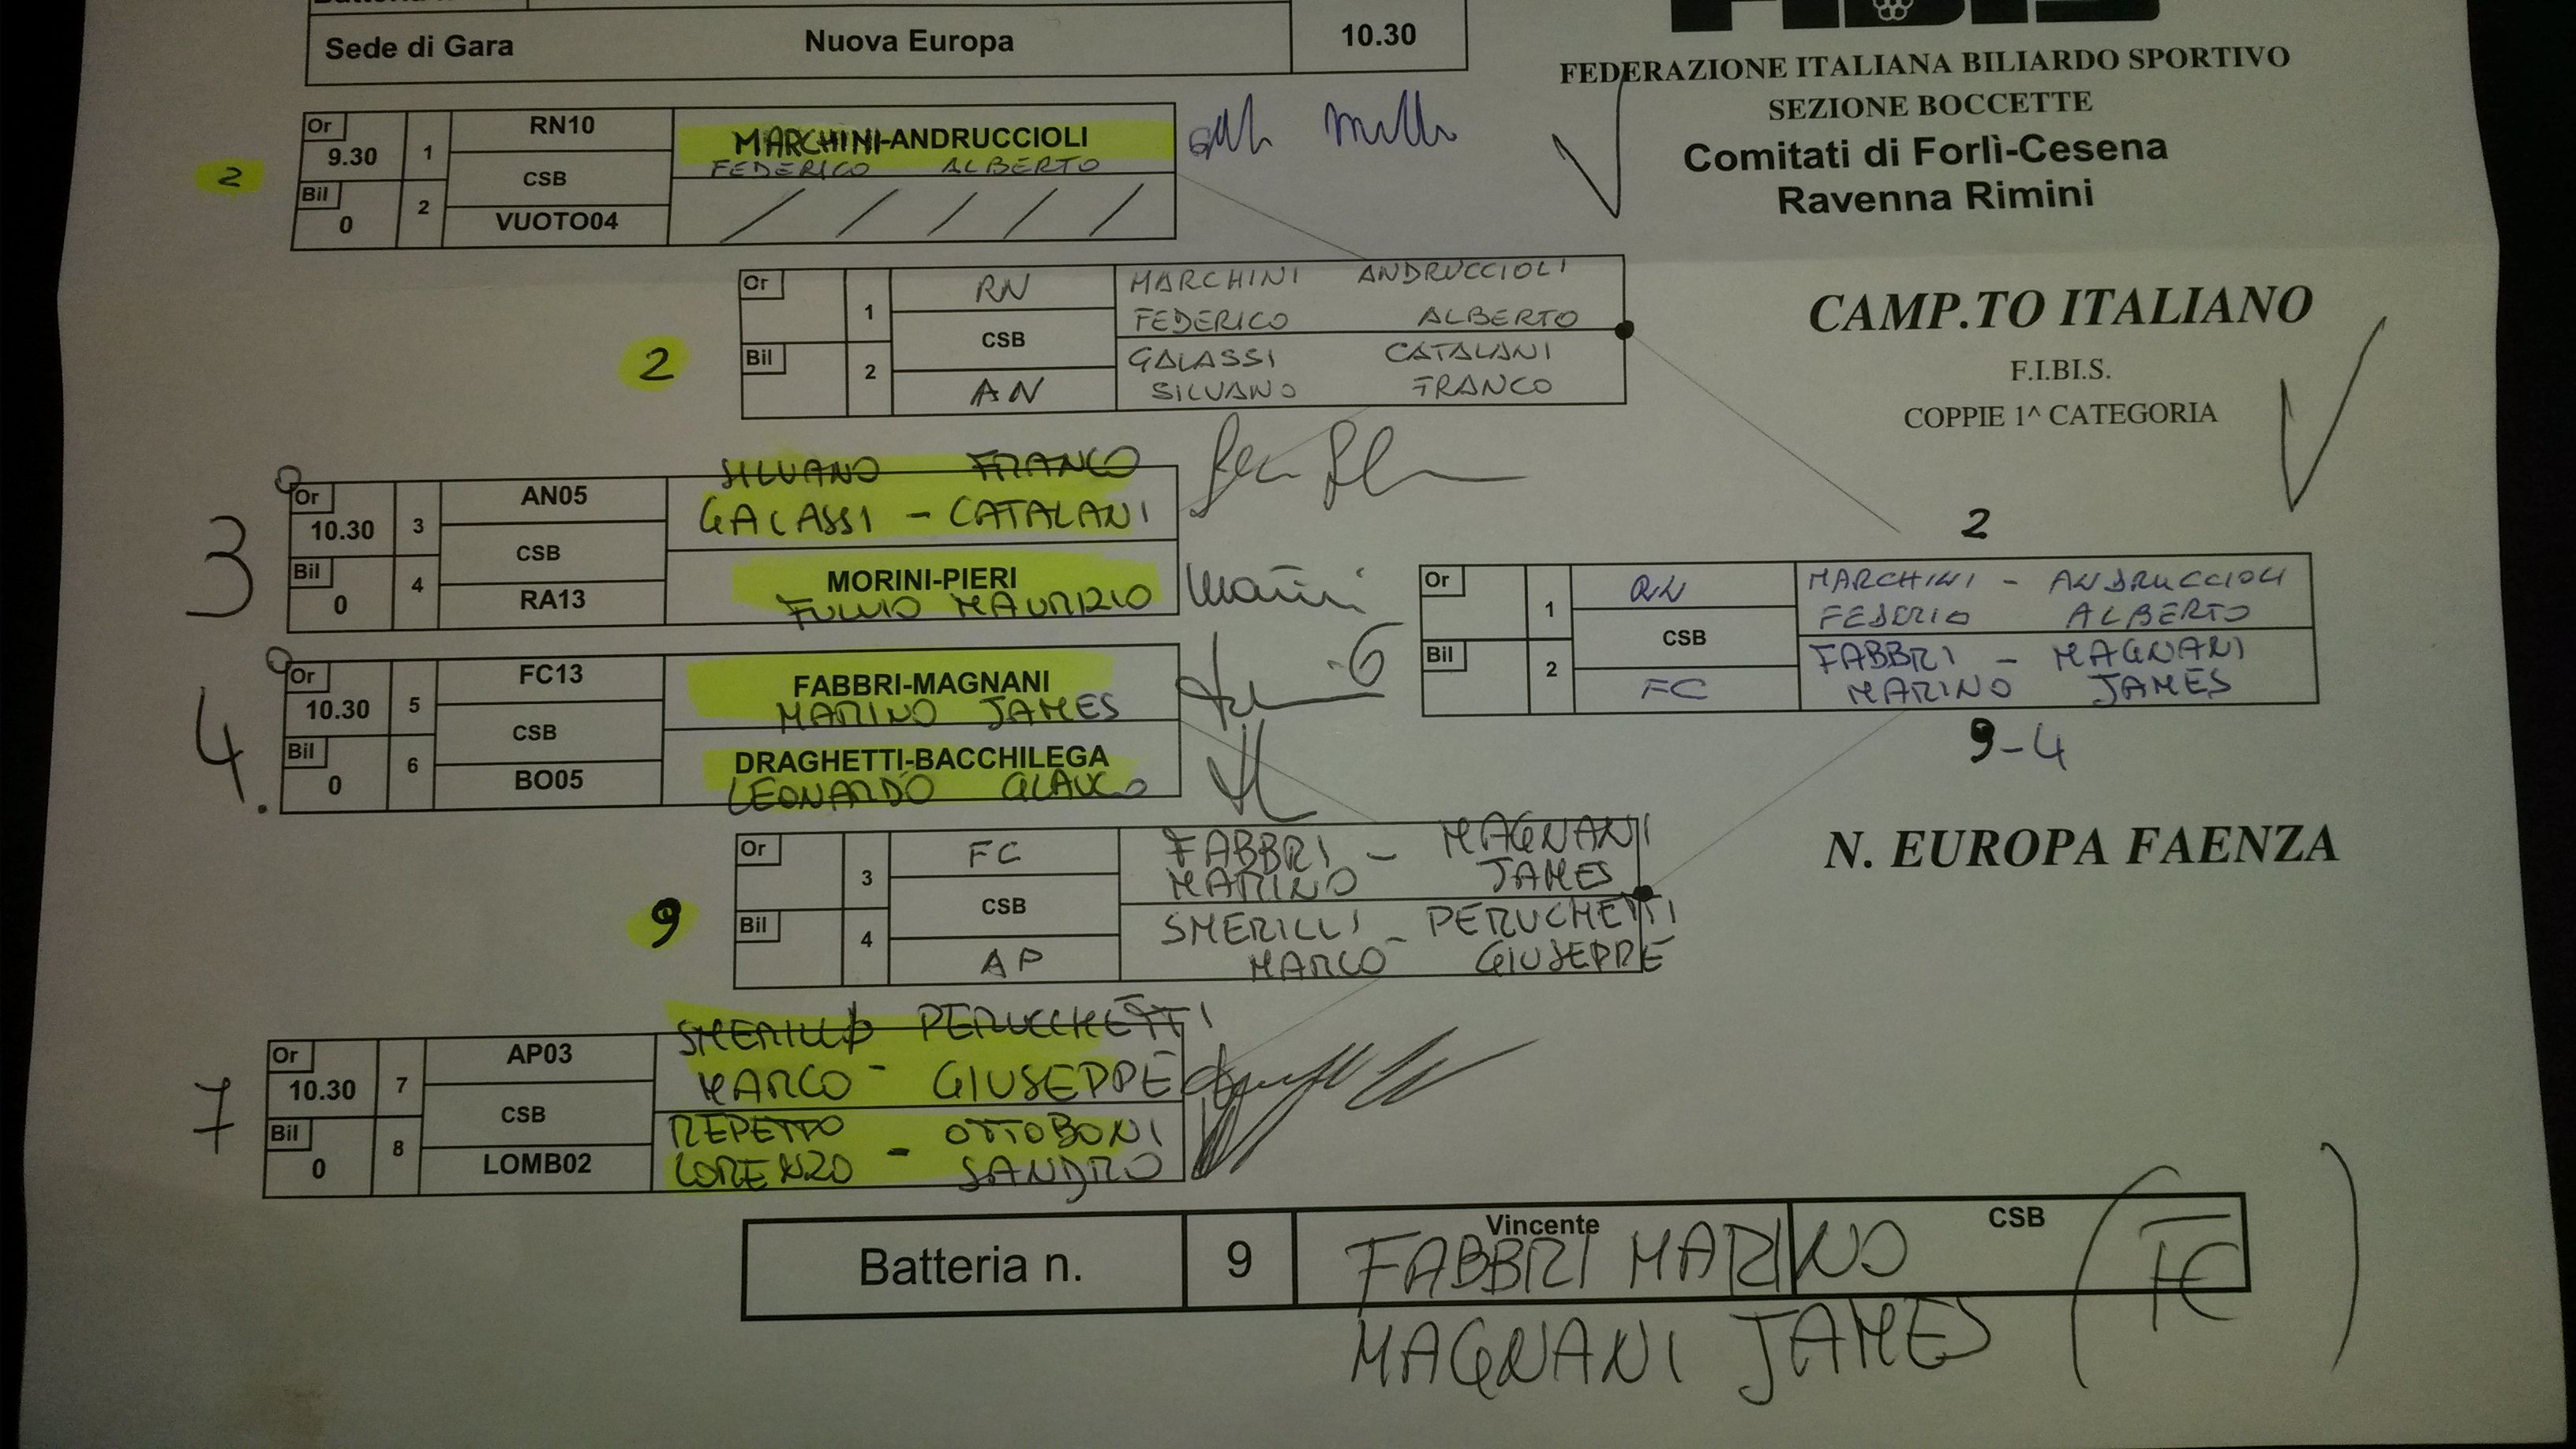 Sede di Gara Nuova Europa 10.30
FEDERAZIONE ITALIANA BILIARDO SPORTIVO
SEZIONE BOCCETTE
Comitati di Forlì-Cesena
Ravenna Rimini
2
Or 9.30 1 RN10 MARCHINI-ANDRUCCIOLI
FEDERICO ALBERTO
CSB
Bil 0 2 VUOTO04 / / / / /
2
Or 1 RN MARCHINI ANDRUCCIOLI
FEDERICO ALBERTO
CSB
Bil 2 AN GALASSI CATALANI
SILVANO FRANCO
CAMP.TO ITALIANO
F.I.BI.S.
COPPIE 1^ CATEGORIA
3
SILVANO FRANCO
Or 10.30 3 AN05 GALASSI - CATALANI
CSB
Bil 0 4 RA13 MORINI-PIERI
FULVIO MAURIZIO
4.
Or 10.30 5 FC13 FABBRI-MAGNANI
MARINO JAMES
CSB
Bil 0 6 BO05 DRAGHETTI-BACCHILEGA
LEONARDO GLAUCO
2
Or 1 RN MARCHINI - ANDRUCCIOLI
FEDERIO ALBERTO
CSB
Bil 2 FC FABBRI - MAGNANI
MARINO JAMES
9-4
9
Or 3 FC FABBRI - MAGNANI
MARINO JAMES
CSB
Bil 4 AP SMERILLI - PERUCHETTI
MARCO GIUSEPPE
N. EUROPA FAENZA
7
SMERILLI PERUCCHETTI
Or 10.30 7 AP03 MARCO - GIUSEPPE
CSB
Bil 0 8 LOMB02 REPETTO - OTTOBONI
LORENZO SANDRO
Batteria n. 9 Vincente CSB
FABBRI MARINO (FC)
MAGNANI JAMES